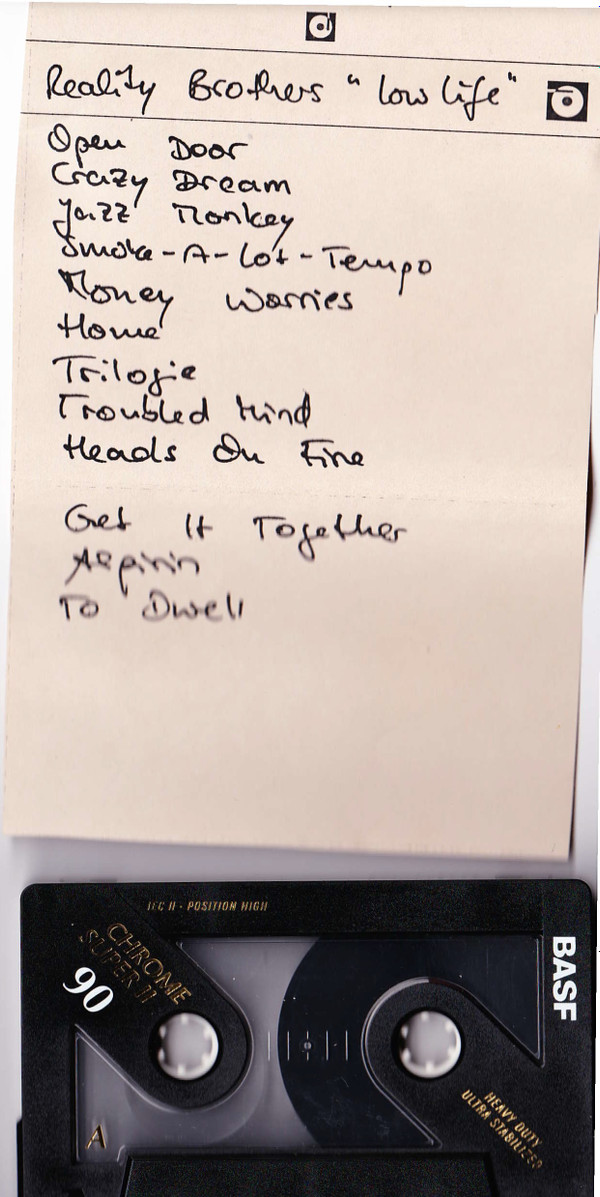 Reality Brothers "Low Life"
Open Door
Crazy Dream
Jazz Monkey
Smoke-A-Lot-Tempo
Money Worries
Home
Trilogie
Troubled Mind
Heads On Fire
Get It Together
Aspirin
To Dwell
IEC II · POSITION HIGH
CHROME
SUPER II
90
BASF
HEAVY DUTY
ULTRA STABILIZED
A